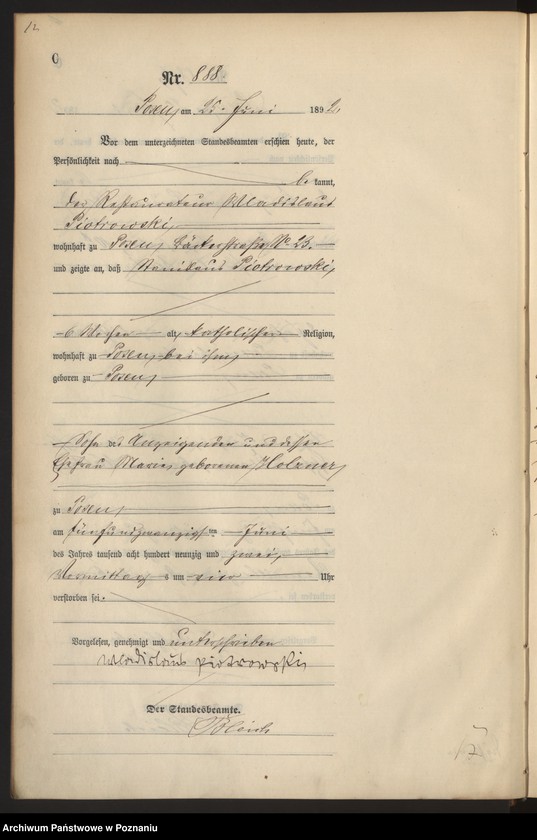 12
C
Nr. 888.
Posen, am 25. Juni 1892,
Vor dem unterzeichneten Standesbeamten erschien heute, der
Persönlichkeit nach
be kannt,
der Restaurateur Wladislaus
Piotrowski,
wohnhaft zu Posen, Bäckerstraße No 23.
und zeigte an, daß Stanislaus Piotrowski,
6 Wochen alt, katholischer Religion,
wohnhaft zu Posen, bei ihm,
geboren zu Posen,
Sohn des Anzeigenden und dessen
Ehefrau Maria geborenen Holzner,
zu Posen,
am fünfundzwanzigsten Juni
des Jahres tausend acht hundert neunzig und zwei,
Vormittags um vier Uhr
verstorben sei.
Vorgelesen, genehmigt und unterschrieben
Wladislaus Piotrowski,
Der Standesbeamte.
Archiwum Państwowe w Poznaniu